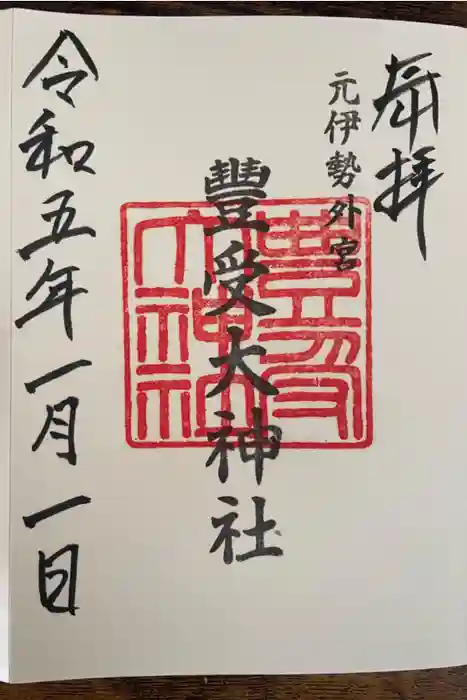 奉拝
元伊勢外宮
豐受大神社
豊受大神社
令和五年一月一日